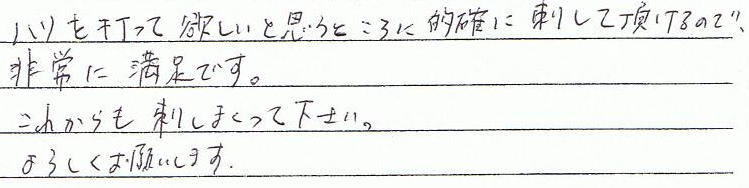 ハリを打って欲しいと思うところに的確に刺して頂けるので、
非常に満足です。
これからも刺しまくって下さい。
よろしくお願いします.